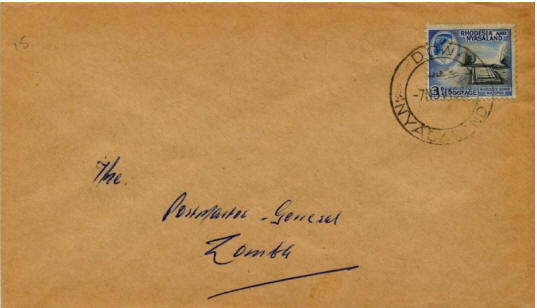 15
RHODESIA AND
NYASALAND
3D
POSTAGE
DOWA
-7 NOV
NYASALAND
The.
Postmaster-General
Zomba